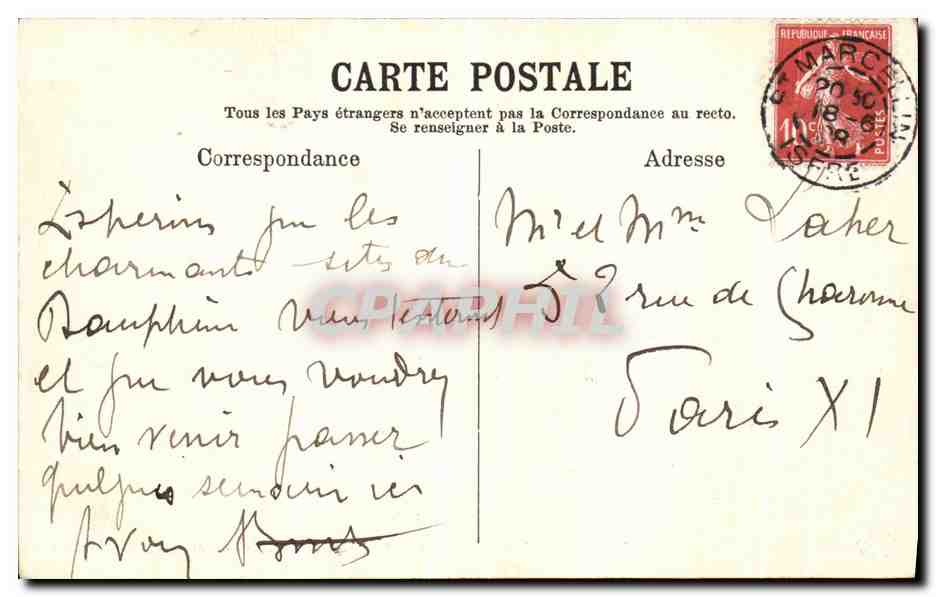 CARTE POSTALE
Tous les Pays étrangers n'acceptent pas la Correspondance au recto.
Se renseigner à la Poste.
Correspondance
Adresse
REPUBLIQUE FRANÇAISE
10c POSTES
ST MARCELLIN
20 30
18-6
08
ISERE
Esperons que les
charmants sites du
Dauphiné vous tenteront
et que vous voudrez
bien venir passer
quelques semaines ici
A vous
Mr et Mme Laher
52 rue de Charonne
Paris XI
CPAPHIL